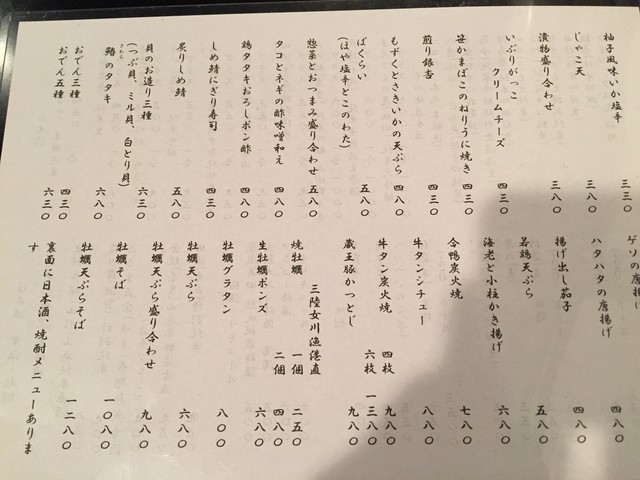 柚子風味いか塩辛 三三〇
じゃこ天 三八〇
漬物盛り合わせ 三八〇
いぶりがっこ
クリームチーズ 四三〇
笹かまぼこのねりうに焼き 四三〇
煎り銀杏 四三〇
もずくとさきいかの天ぷら 四八〇
ばくらい
(ほや塩辛とこのわた) 五八〇
惣菜とおつまみ盛り合わせ 五八〇
タコとネギの酢味噌和え 四八〇
鶏タタキおろしポン酢 四八〇
しめ鯖にぎり寿司 四三〇
炙りしめ鯖 五八〇
貝のお造り三種 六三〇
(つぶ貝、ミル貝、白とり貝)
鰆のタタキ 六八〇
さわら
おでん三種 四三〇
おでん五種 六三〇
ゲソの唐揚げ 四八〇
ハタハタの唐揚げ 四八〇
揚げ出し茄子 五八〇
若鶏天ぷら 六八〇
海老と小柱かき揚げ 七八〇
合鴨炭火焼 八八〇
牛タンシチュー 九八〇
牛タン炭火焼 四枚 九八〇
六枚 一三八〇
蔵王豚かつとじ 九八〇
三陸女川漁港直
焼牡蠣 一個 二五〇
二個 四八〇
生牡蠣ポンズ 六八〇
牡蠣グラタン 八〇〇
牡蠣天ぷら 六八〇
牡蠣天ぷら盛り合わせ 九八〇
牡蠣そば 一〇八〇
牡蠣天ぷらそば 一二八〇
裏面に日本酒、焼酎メニューありま
す